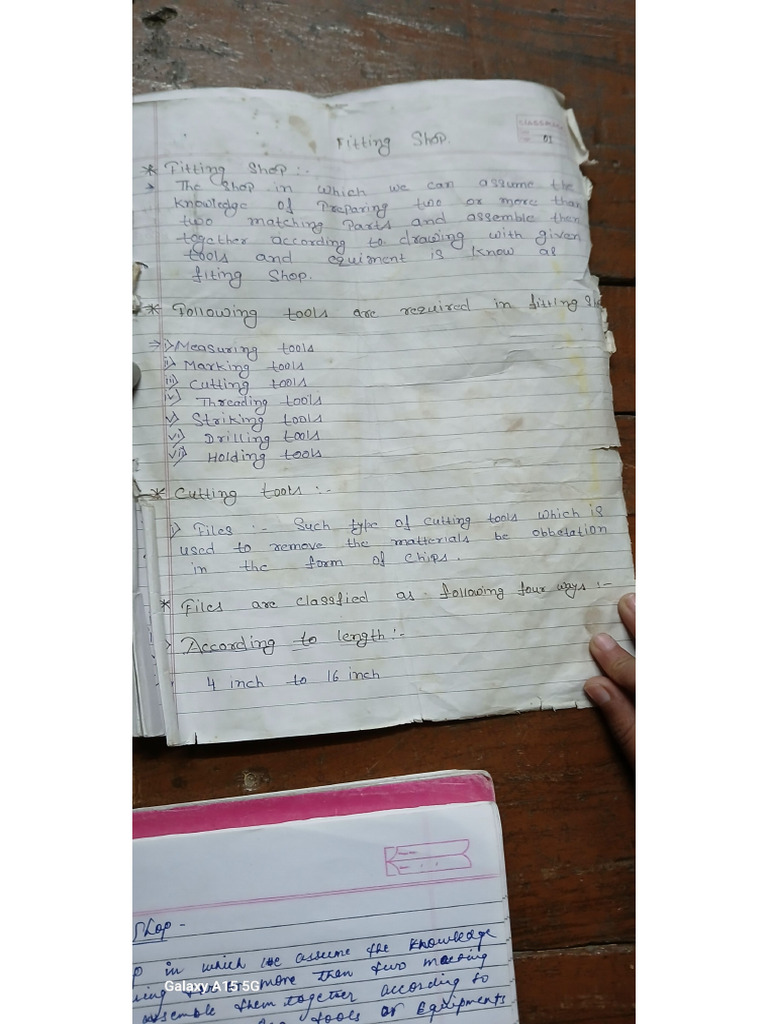 Fitting Shop.
CLASSMATE
01
* Fitting Shop :-
The Shop in which we can assume the
knowledge of Preparing two or more than
two matching Parts and assemble then
together according to drawing with given
tools and equiment is know as
fiting Shop.
* Following tools are required in fitting
⇒ i) Measuring tools
ii) Marking tools
iii) Cutting tools
iv) Threading tools
v) Striking tools
vi) Drilling tools
vii) Holding tools
* Cutting tools :-
i) Files :- Such type of cutting tools which is
used to remove the matterials be obbetation
in the form of chips.
* Files are classfied as following four ways :-
> According to length :-
4 inch to 16 inch
Shop -
in which we assume the knowledge
more then two
assemble them together according to
tools or Equipments
Galaxy A15 5G